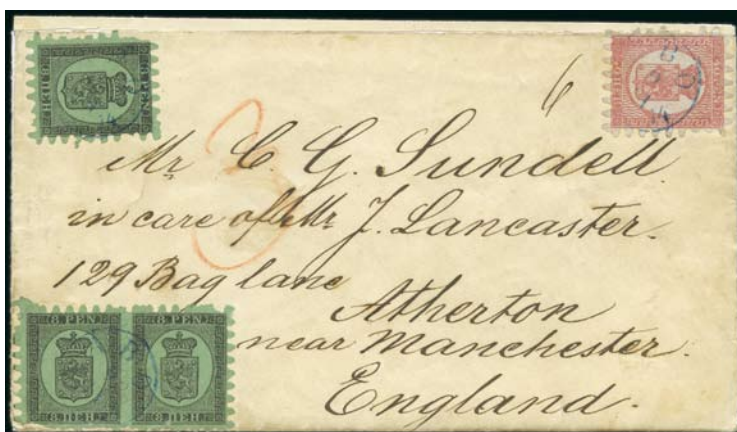 6
3
Mr C. G. Sundell
in care of Mr J. Lancaster.
129 Bag lane
Atherton
near Manchester.
England.
8 PEN. 8 PEN.
8 ПЕН. 8 ПЕН.